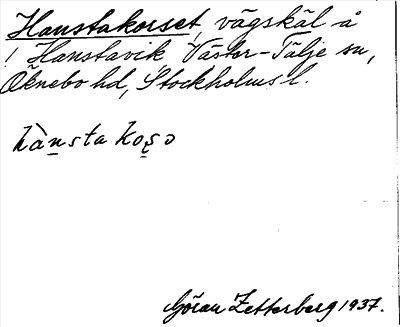 Hanstakorset, vägskäl å
1 Hanstavik, Väster-Tälje sn,
Öknebo hd, Stockholms l.
hànsta koșə
Göran Zetterberg 1937.